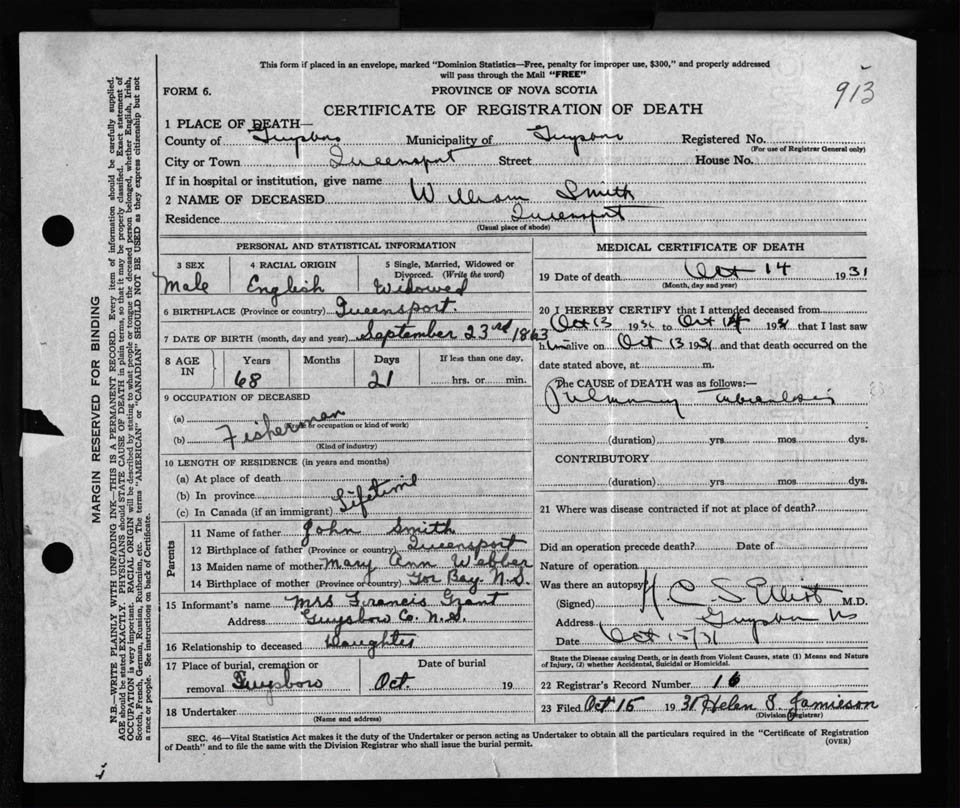 This form if placed in an envelope, marked "Dominion Statistics—Free, penalty for improper use, $300," and properly addressed
will pass through the Mail "FREE"
FORM 6.
PROVINCE OF NOVA SCOTIA
913
CERTIFICATE OF REGISTRATION OF DEATH
1 PLACE OF DEATH—
County of Guysboro Municipality of Guysboro Registered No.
(For use of Registrar General only)
City or Town Queensport Street House No.
If in hospital or institution, give name
2 NAME OF DECEASED William Smith
Residence Queensport
(Usual place of abode)
PERSONAL AND STATISTICAL INFORMATION
3 SEX
Male
4 RACIAL ORIGIN
English
5 Single, Married, Widowed or
Divorced. (Write the word)
Widowed
6 BIRTHPLACE (Province or country) Queensport.
7 DATE OF BIRTH (month, day and year) September 23rd 1863
8 AGE
IN
Years
68
Months
Days
21
If less than one day,
hrs. or min.
9 OCCUPATION OF DECEASED
(a)
(Trade or occupation or kind of work)
(b) Fisherman
(Kind of industry)
10 LENGTH OF RESIDENCE (in years and months)
(a) At place of death
(b) In province Lifetime
(c) In Canada (if an immigrant)
Parents
11 Name of father John Smith
12 Birthplace of father (Province or country) Queensport
13 Maiden name of mother Mary Ann Webber
14 Birthplace of mother (Province or country) Tor Bay. N.S.
15 Informant's name Mrs Francis Grant
Address Guysboro Co. N.S.
16 Relationship to deceased Daughter
17 Place of burial, cremation or
removal Guysboro
Date of burial
Oct. 19
18 Undertaker
(Name and address)
MEDICAL CERTIFICATE OF DEATH
19 Date of death Oct 14 1931
(Month, day and year)
20 I HEREBY CERTIFY that I attended deceased from
Oct 13 1931 to Oct 14 1931 that I last saw
him alive on Oct 13 1931 and that death occurred on the
date stated above, at m.
The CAUSE OF DEATH was as follows:—
Pulmonary Tuberculosis
(duration) yrs. mos. dys.
CONTRIBUTORY
(duration) yrs. mos. dys.
21 Where was disease contracted if not at place of death?
Did an operation precede death? Date of
Nature of operation
Was there an autopsy
(Signed) H. C. S. Elliot M.D.
Address Guysboro NS
Date Oct 15/31
State the Disease causing Death, or in death from Violent Causes, state (1) Means and Nature
of Injury, (2) whether Accidental, Suicidal or Homicidal.
22 Registrar's Record Number 16
23 Filed Oct 15 1931 Helen S. Jamieson
(Division Registrar)
SEC. 46—Vital Statistics Act makes it the duty of the Undertaker or person acting as Undertaker to obtain all the particulars required in the "Certificate of Registration
of Death" and to file the same with the Division Registrar who shall issue the burial permit.
(OVER)
MARGIN RESERVED FOR BINDING
N.B.—WRITE PLAINLY WITH UNFADING INK—THIS IS A PERMANENT RECORD. Every item of information should be carefully supplied.
AGE should be stated EXACTLY. PHYSICIANS should STATE CAUSE OF DEATH in plain terms, so that it may be properly classified. Exact statement of
OCCUPATION is very important. RACIAL ORIGIN will be described by stating to what people or tongue the deceased person belonged, whether English, Irish,
Scotch, French, German, Russian, Ruthenian, etc. The terms "AMERICAN" or "CANADIAN" SHOULD NOT BE USED as they express citizenship but not
a race or people. See instructions on back of Certificate.